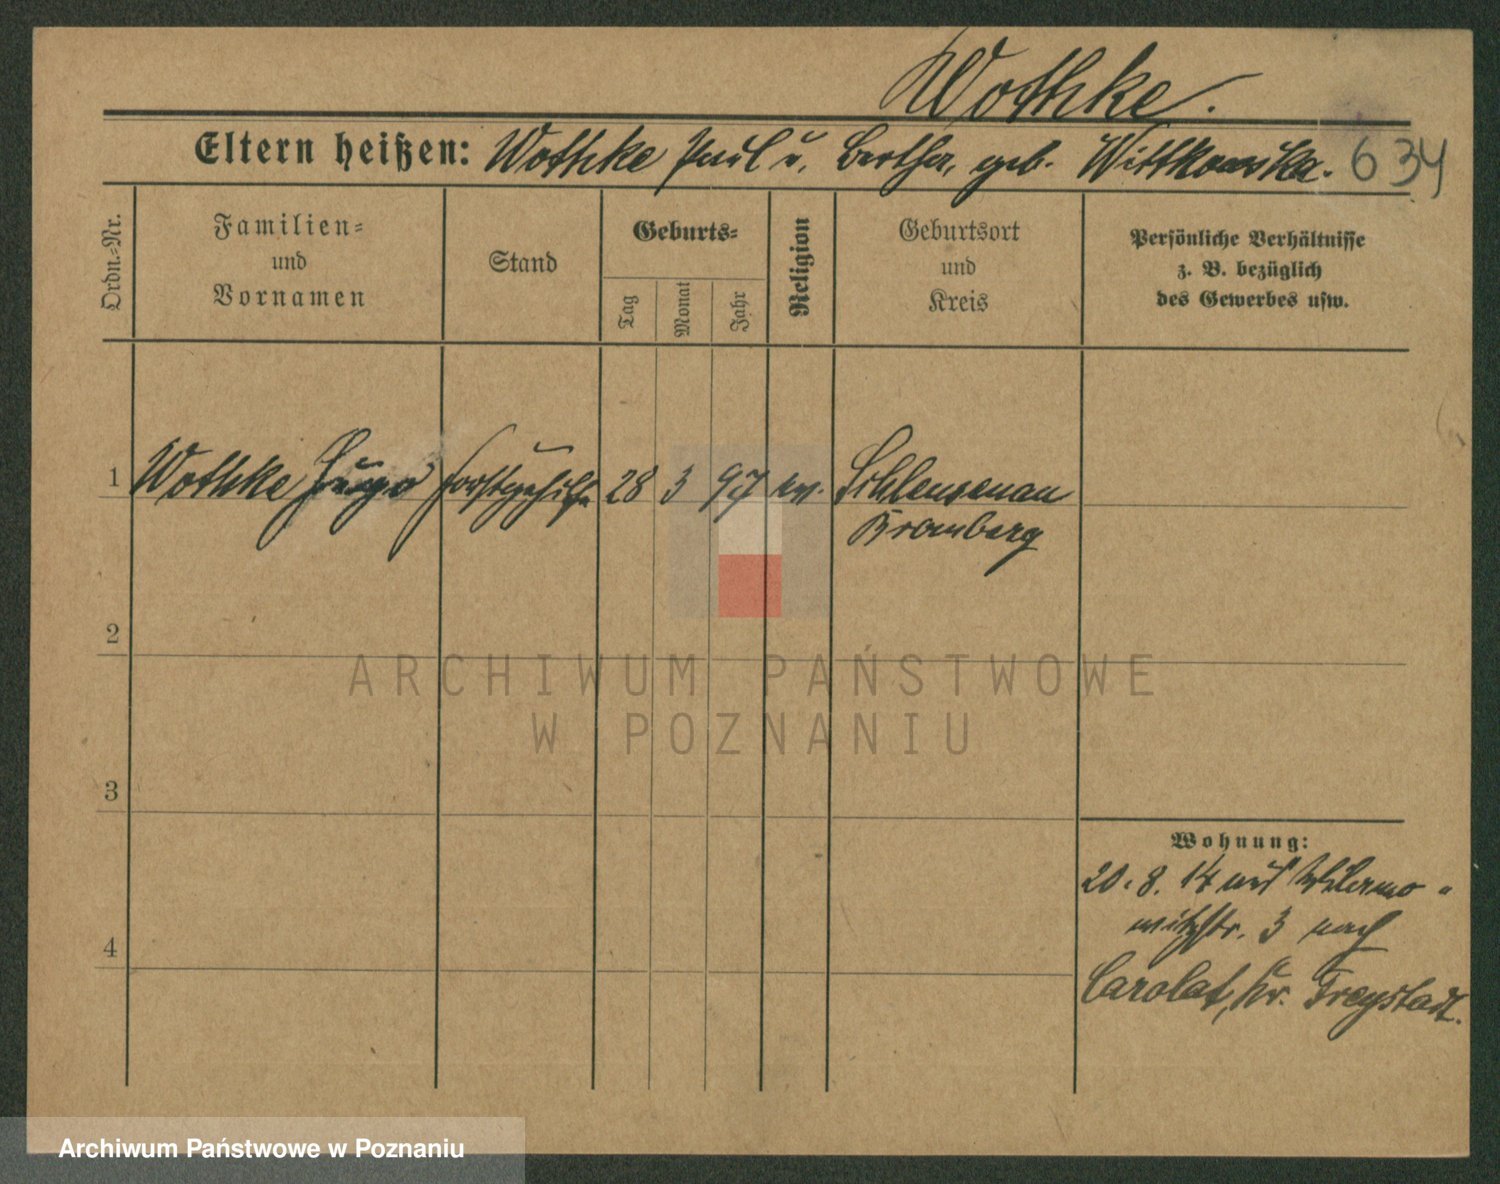 Wothke.
Eltern heißen: Wothke Paul u. Bertha, geb. Wittkowska.
634
Ordn.-Nr.
Familien-
und
Vornamen
Stand
Geburts-
Tag
Monat
Jahr
Religion
Geburtsort
und
Kreis
Persönliche Verhältnisse
z. B. bezüglich
des Gewerbes usw.
1 Wothke Hugo Forstgehilfe 28 3 97 ev. Schleusenau
Bromberg
2
ARCHIWUM PAŃSTWOWE
W POZNANIU
3
Wohnung:
20. 8. 14 auf Wilamo-
witzstr. 3 nach
4
Carolat, Kr. Freystadt.
Archiwum Państwowe w Poznaniu